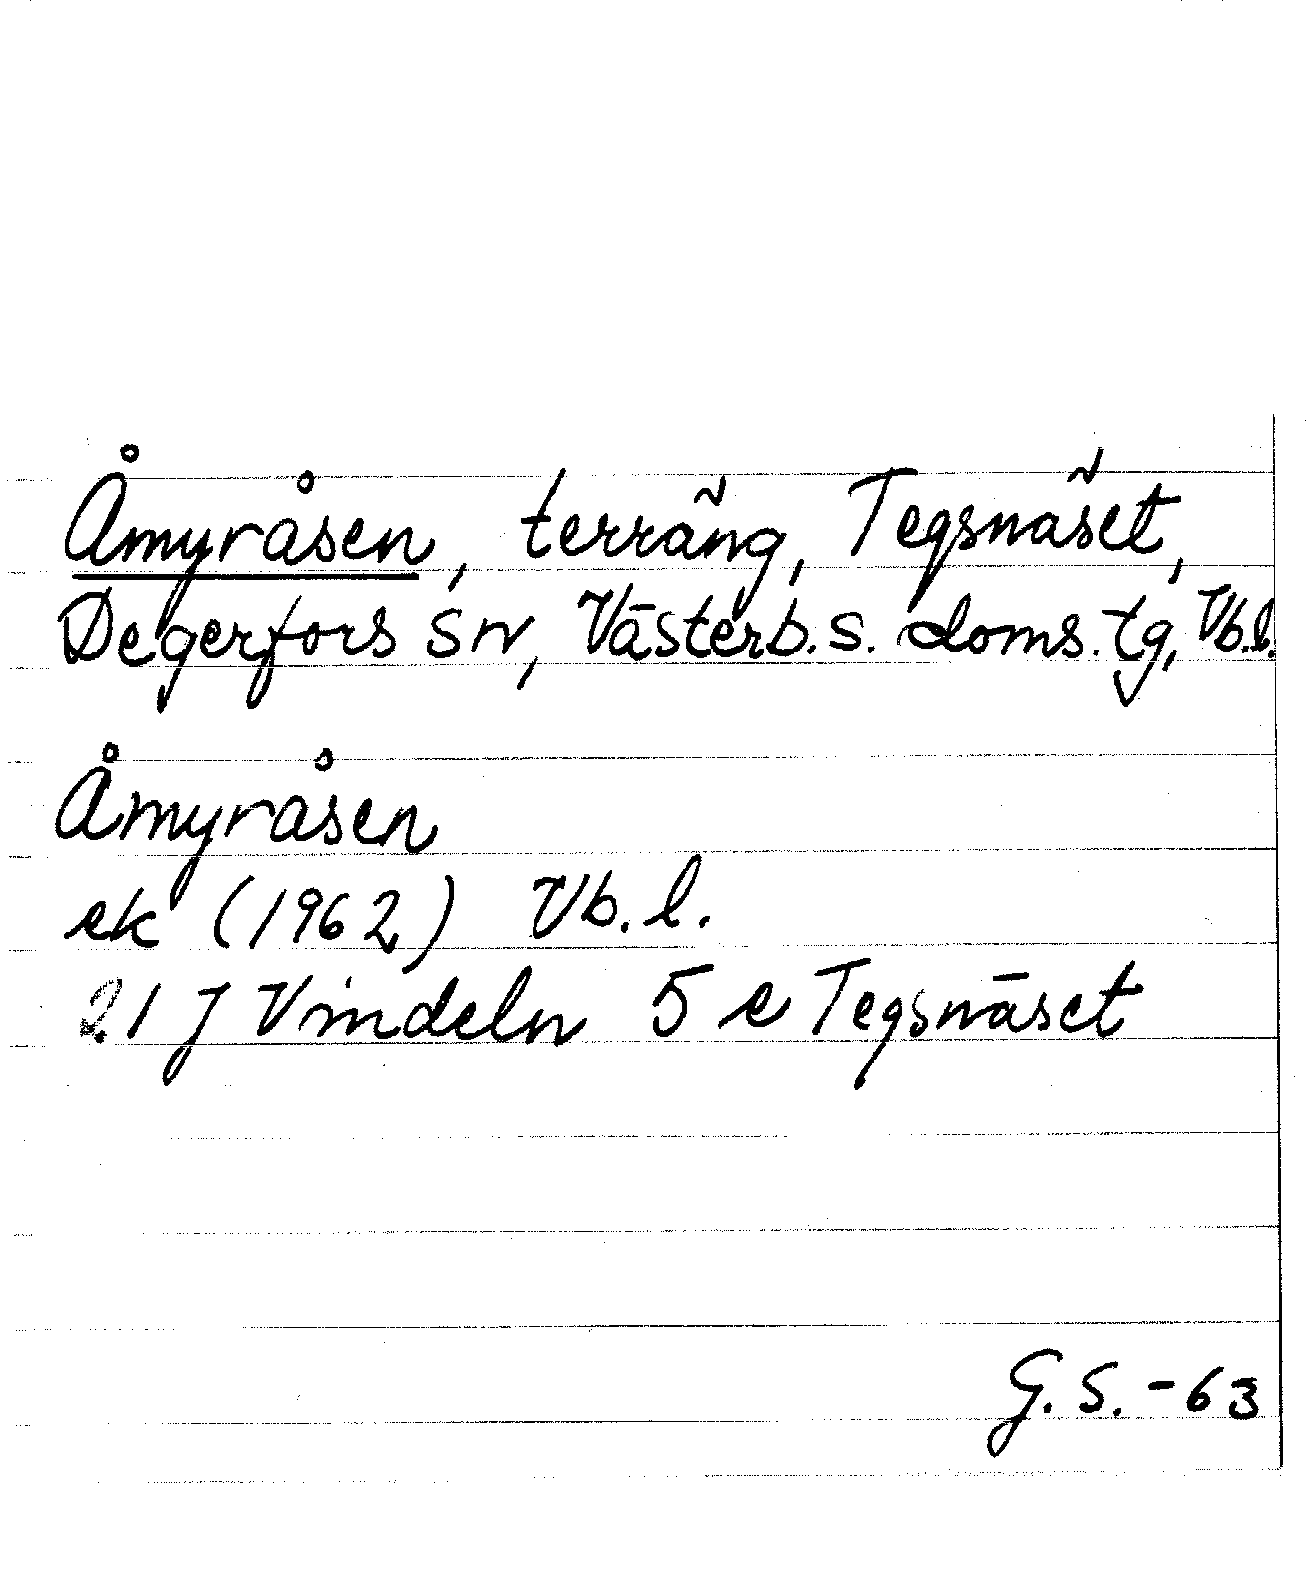 Åmyråsen, terräng, Tegsnäset,
Degerfors sn, Västerb. s. doms. tg, Vb. l.
Åmyråsen
ek (1962) Vb. l.
21 J Vindeln 5 e Tegsnäset
G. S. - 63